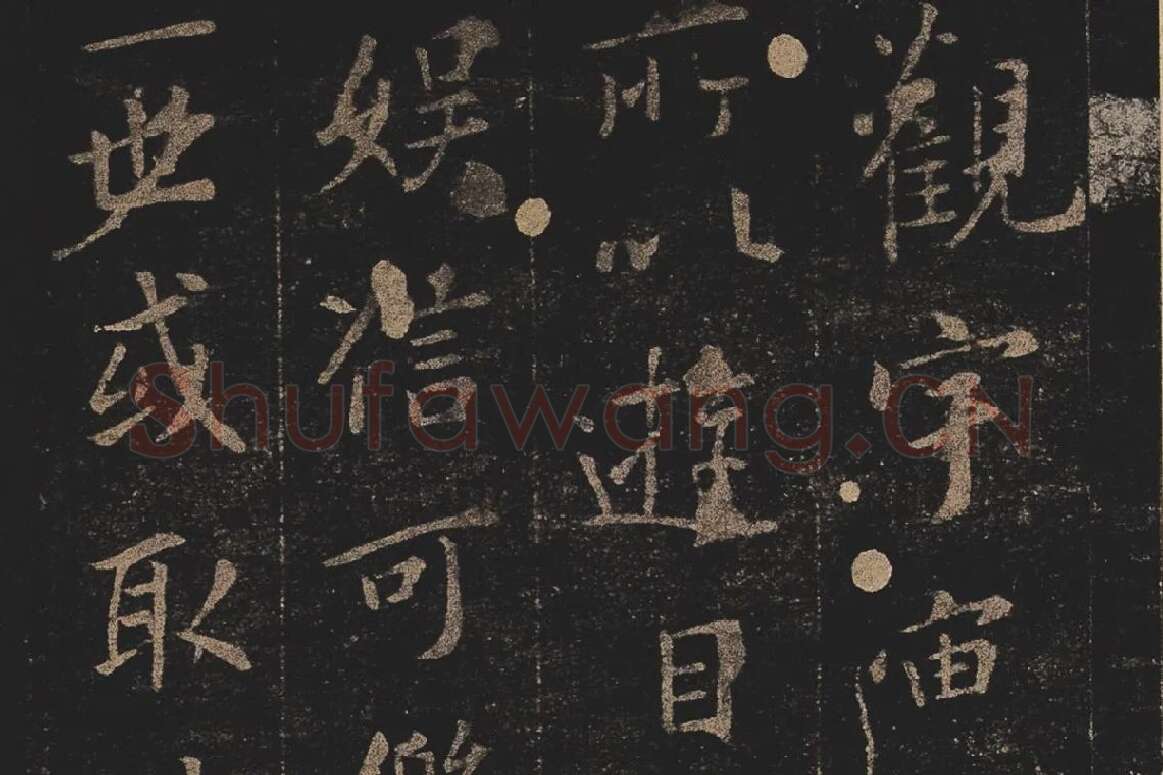 觀宇宙
所以遊目
娛信可樂
一世或取
Shufawang.CN